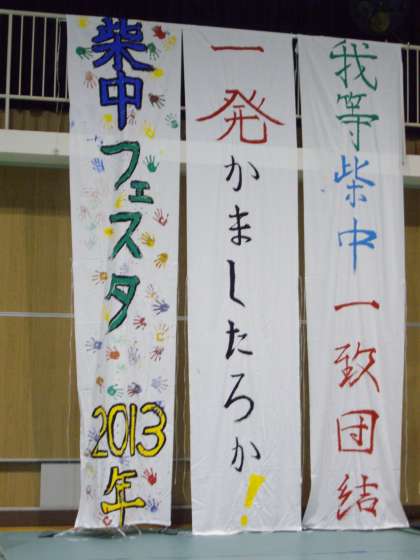 我等柴中一致団結
一発かましたろか!
柴中フェスタ2013年